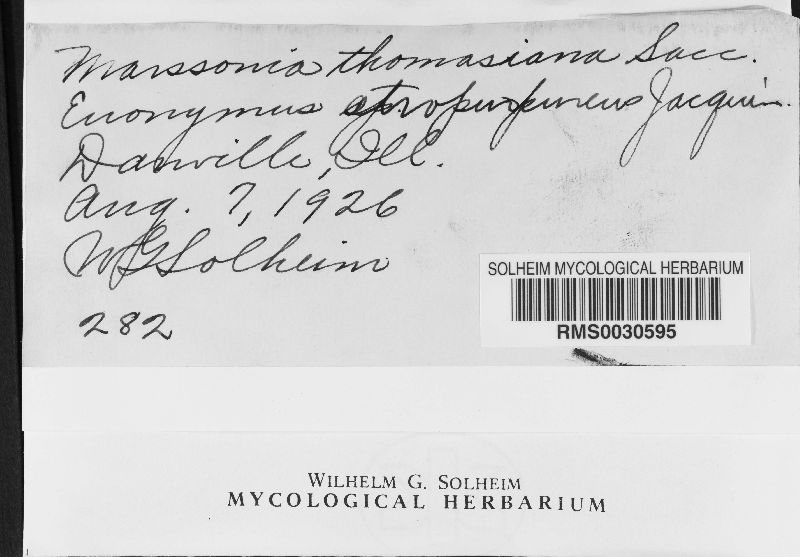 Marssonia thomasiana Sacc.
Euonymus atropurpureus Jacquin.
Danville, Ill.
Aug. 7, 1926
WGSolheim
282
SOLHEIM MYCOLOGICAL HERBARIUM
RMS0030595
WILHELM G. SOLHEIM
MYCOLOGICAL HERBARIUM